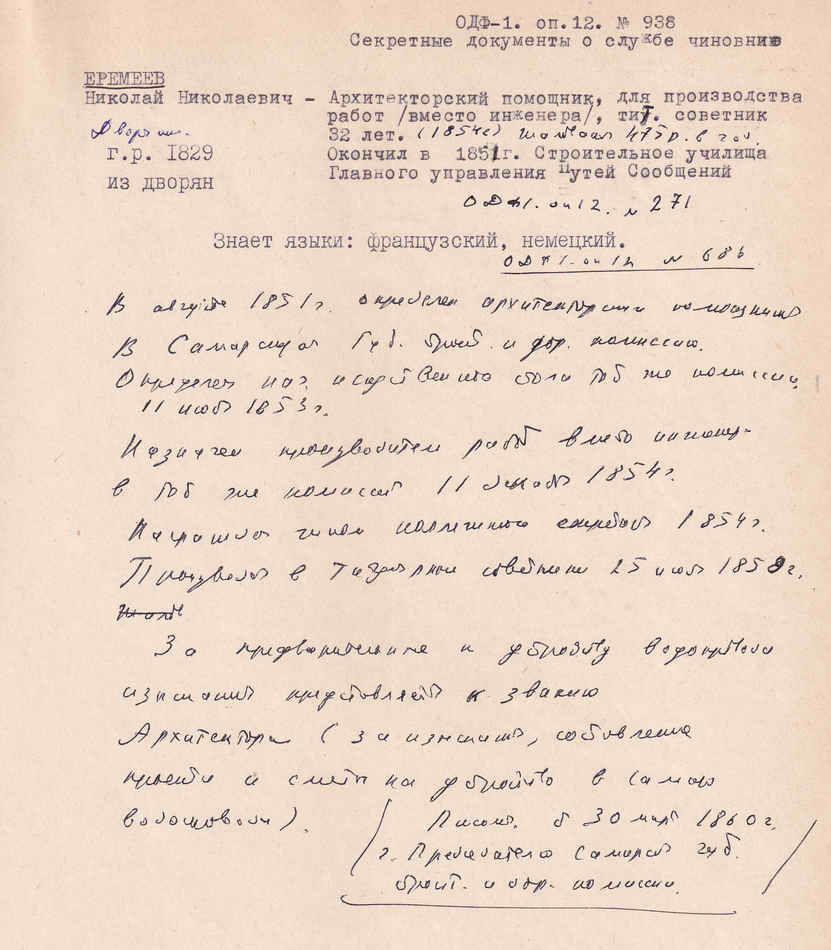 ОДФ-1. оп.12. № 938
Секретные документы о службе чиновник
ЕРЕМЕЕВ
Николай Николаевич - Архитекторский помощник, для производства
работ /вместо инженера/, тит. советник
Дворян.
32 лет. (1854г) 475р. в год.
г.р. 1829
Окончил в 1851г. Строительное училища
Главного управления Путей Сообщений
из дворян
ОДФ1. оп12. № 271
Знает языки: французский, немецкий.
ОДФ1. оп12 № 686
В августе 1851г. определен архитекторским помощником
В Самарскую Губ. строит. и дор. комиссию.
Определен нач. искусственного стола той же комиссии
11 1853г.
Назначен производителем работ вместо инженера
в той же комиссии 11 1854г.
чином коллежского секретаря 1854г.
Произведен в титулярные советники 25 1858г.
За предварительные к устройству водопровода
изыскания представляется к званию
Архитектора (за изыскания, составление
проекта и сметы на устройство в Самаре
водопровода).
Письмо. 30 мар 1860г.
г. Председателю Самарск губ.
строит. и дор. комиссии.